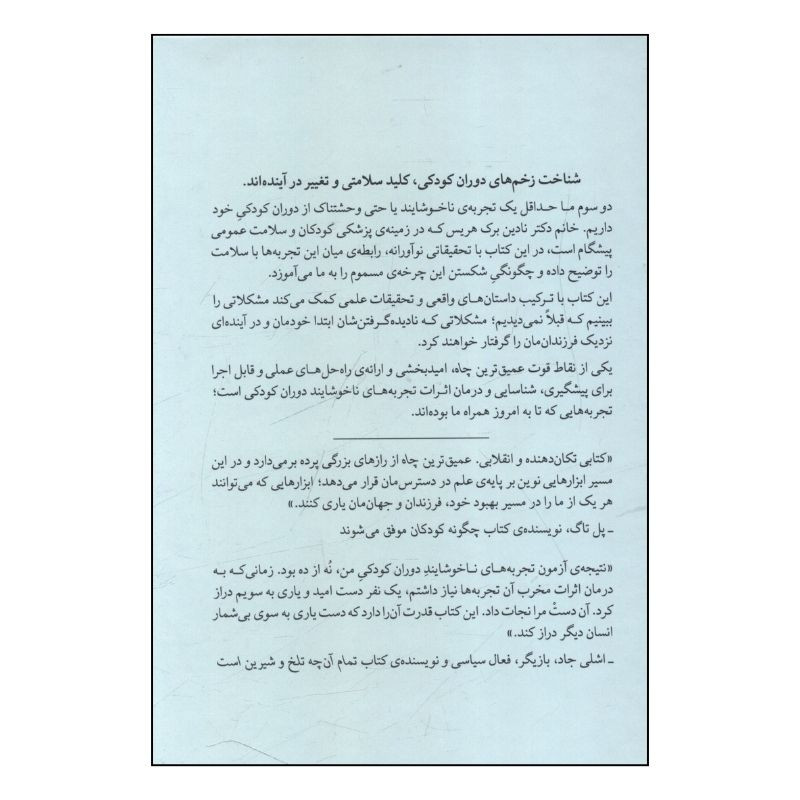 شناخت زخم‌های دوران کودکی، کلید سلامتی و تغییر در آینده‌اند.
دو سوم ما حداقل یک تجربه‌ی ناخوشایند یا حتی وحشتناک از دوران کودکیِ خود
داریم. خانم دکتر نادین برک هریس که در زمینه‌ی پزشکی کودکان و سلامت عمومی
پیشگام است، در این کتاب با تحقیقاتی نوآورانه، رابطه‌ی میان این تجربه‌ها با سلامت
را توضیح داده و چگونگیِ شکستن این چرخه‌ی مسموم را به ما می‌آموزد.
این کتاب با ترکیب داستان‌های واقعی و تحقیقات علمی کمک می‌کند مشکلاتی را
ببینیم که قبلاً نمی‌دیدیم؛ مشکلاتی که نادیده‌گرفتن‌شان ابتدا خودمان و در آینده‌ای
نزدیک فرزندان‌مان را گرفتار خواهند کرد.
یکی از نقاط قوت عمیق‌ترین چاه، امیدبخشی و ارائه‌ی راه‌حل‌های عملی و قابل اجرا
برای پیشگیری، شناسایی و درمان اثرات تجربه‌های ناخوشایند دوران کودکی است؛
تجربه‌هایی که تا به امروز همراه ما بوده‌اند.
«کتابی تکان‌دهنده و انقلابی. عمیق‌ترین چاه از رازهای بزرگی پرده برمی‌دارد و در این
مسیر ابزارهایی نوین بر پایه‌ی علم در دسترس‌مان قرار می‌دهد؛ ابزارهایی که می‌توانند
هر یک از ما را در مسیر بهبود خود، فرزندان و جهان‌مان یاری کنند.»
ـ پل تاگ، نویسنده‌ی کتاب چگونه کودکان موفق می‌شوند
«نتیجه‌ی آزمون تجربه‌های ناخوشایندِ دوران کودکیِ من، نُه از ده بود. زمانی‌که به
درمان اثرات مخرب آن تجربه‌ها نیاز داشتم، یک نفر دست امید و یاری به سویم دراز
کرد. آن دستْ مرا نجات داد. این کتاب قدرت آن‌را دارد که دست یاری به سوی بی‌شمار
انسان دیگر دراز کند.»
ـ اشلی جاد، بازیگر، فعال سیاسی و نویسنده‌ی کتاب تمام آن‌چه تلخ و شیرین است